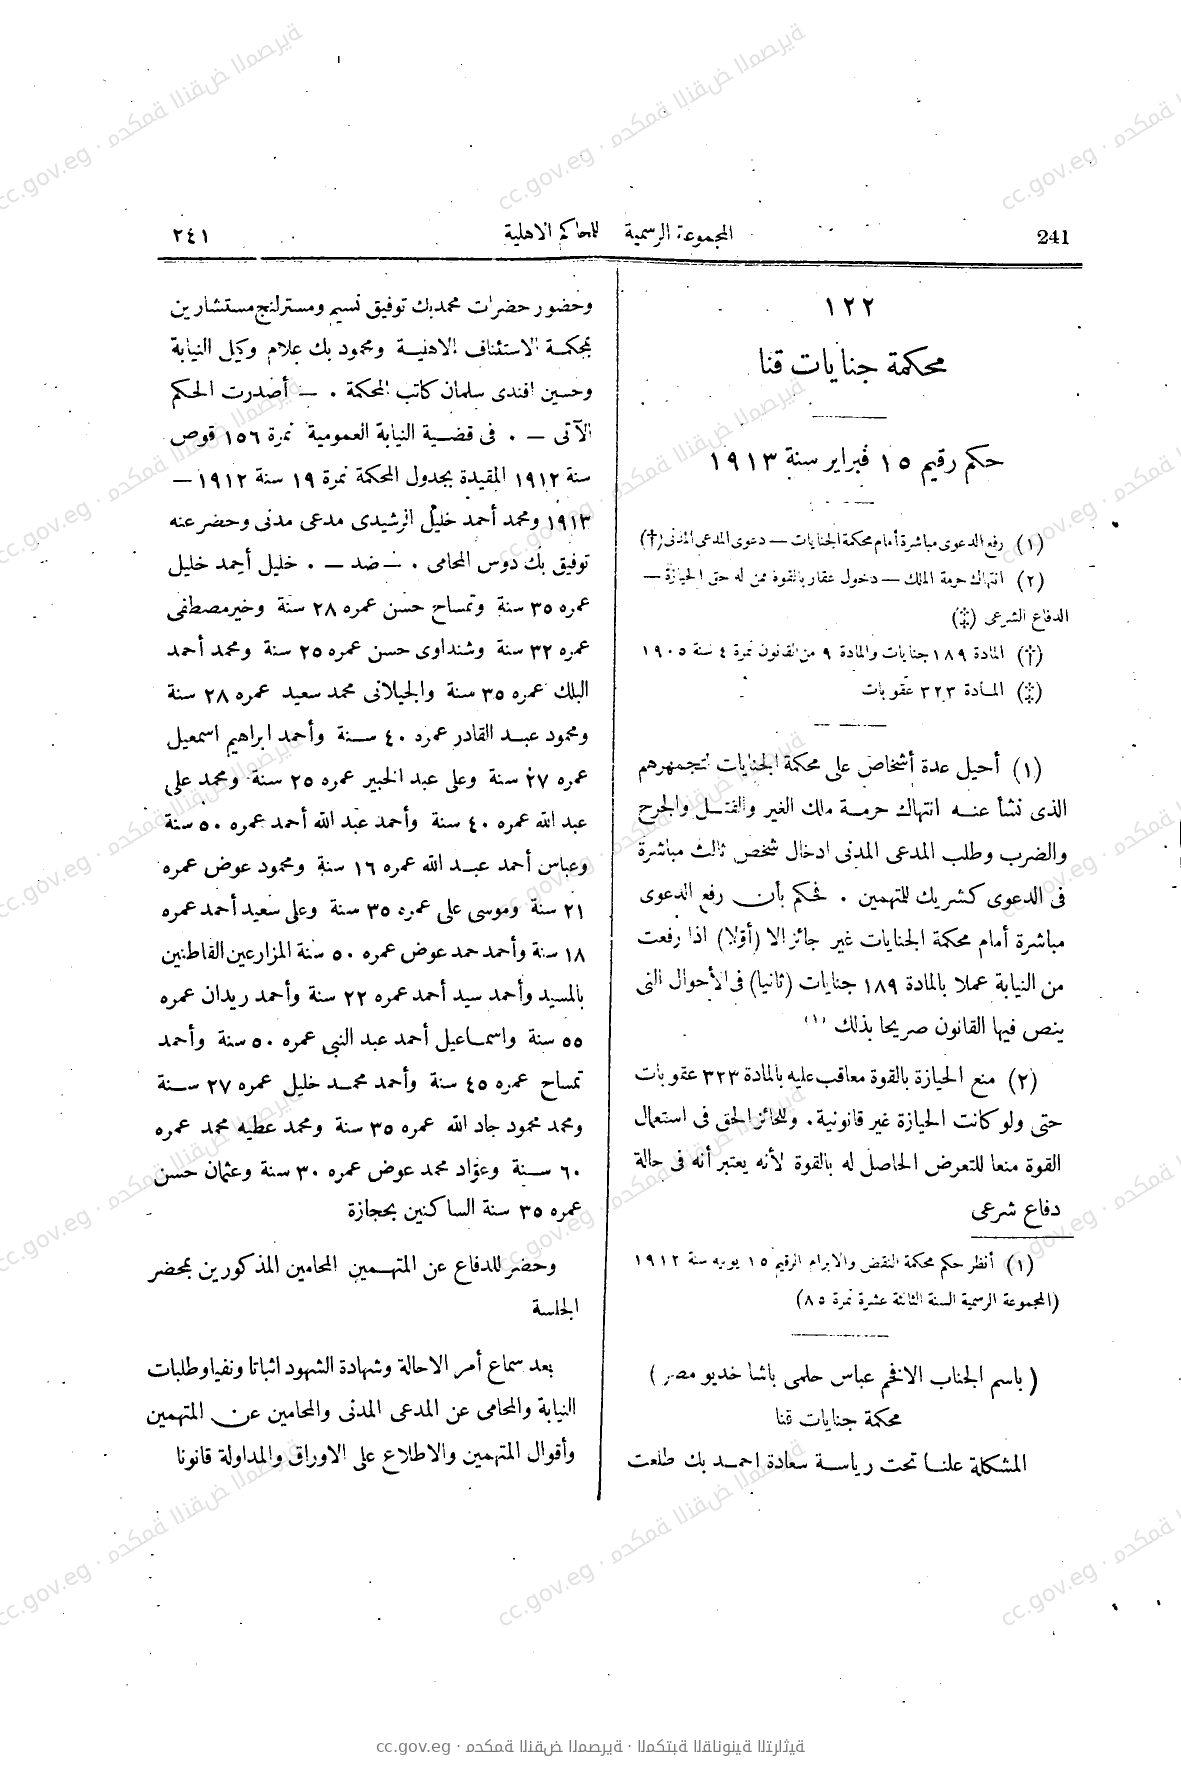 241 المجموعة الرسمية للمحاكم الاهلية ٢٤١
١٢٢
محكمة جنايات قنا
حكم رقيم ١٥ فبراير سنة ١٩١٣
(١) رفع الدعوى مباشرة أمام محكمة الجنايات — دعوى المدعى المدنى (†)
(٢) انتهاك حرمة الملك — دخول عقار بالقوة ممن له حق الحيازة —
الدفاع الشرعى (‡)
(†) المادة ١٨٩ جنايات والمادة ٩ من القانون نمرة ٤ سنة ١٩٠٥
(‡) المادة ٣٢٣ عقوبات
(١) أحيل عدة أشخاص على محكمة الجنايات لتجمهرهم
الذى نشأ عنه انتهاك حرمة ملك الغير والقتل والجرح
والضرب وطلب المدعى المدنى ادخال شخص ثالث مباشرة
فى الدعوى كشريك للمتهمين . فحكم بأن رفع الدعوى
مباشرة أمام محكمة الجنايات غير جائز الا (أولا) اذا رفعت
من النيابة عملا بالمادة ١٨٩ جنايات (ثانيا) فى الأحوال التى
ينص فيها القانون صريحا بذلك (١)
(٢) منع الحيازة بالقوة معاقب عليه بالمادة ٣٢٣ عقوبات
حتى ولو كانت الحيازة غير قانونية. وللحائز الحق فى استعمال
القوة منعا للتعرض الحاصل له بالقوة لأنه يعتبر أنه فى حالة
دفاع شرعى
(١) أنظر حكم محكمة النقض والابرام الرقيم ١٥ يونيه سنة ١٩١٢
(المجموعة الرسمية السنة الثالثة عشرة نمرة ٨٥)
( باسم الجناب الافخم عباس حلمى باشا خديو مصر )
محكمة جنايات قنا
المشكلة علنا تحت رياسة سعادة احمد بك طلعت
وحضور حضرات محمد بك توفيق نسيم ومستر لنج مستشارين
بمحكمة الاستئناف الاهلية ومحمود بك علام وكيل النيابة
وحسين افندى سلمان كاتب المحكمة . — أصدرت الحكم
الآتى — . فى قضية النيابة العمومية نمرة ١٥٦ قوص
سنة ١٩١٢ المقيدة بجدول المحكمة نمرة ١٩ سنة ١٩١٢ —
١٩١٣ ومحمد أحمد خليل الرشيدى مدعى مدنى وحضر عنه
توفيق بك دوس المحامى . — ضد — . خليل أحمد خليل
عمره ٣٥ سنة وتمساح حسن عمره ٢٨ سنة وخير مصطفى
عمره ٣٢ سنة وشنداوى حسن عمره ٢٥ سنة ومحمد أحمد
البلك عمره ٣٥ سنة والجيلانى محمد سعيد عمره ٢٨ سنة
ومحمود عبد القادر عمره ٤٠ سنة وأحمد ابراهيم اسمعيل
عمره ٢٧ سنة وعلى عبد الخبير عمره ٢٥ سنة ومحمد على
عبد الله عمره ٤٠ سنة وأحمد عبد الله أحمد عمره ٥٠ سنة
وعباس أحمد عبد الله عمره ١٦ سنة ومحمود عوض عمره
٢١ سنة وموسى على عمره ٣٥ سنة وعلى سعيد أحمد عمره
١٨ سنة وأحمد حمد عوض عمره ٥٠ سنة المزارعين القاطنين
بالمسيد وأحمد سيد أحمد عمره ٢٢ سنة وأحمد ريدان عمره
٥٥ سنة واسماعيل أحمد عبد النبى عمره ٥٠ سنة وأحمد
تمساح عمره ٤٥ سنة وأحمد محمد خليل عمره ٢٧ سنة
ومحمد محمود جاد الله عمره ٣٥ سنة ومحمد عطيه محمد عمره
٦٠ سنة وعؤاد محمد عوض عمره ٣٠ سنة وعثمان حسن
عمره ٣٥ سنة الساكنين بحجازة
وحضر للدفاع عن المتهمين المحامين المذكورين بمحضر
الجلسة
بعد سماع أمر الاحالة وشهادة الشهود اثباتا ونفيا وطلبات
النيابة والمحامى عن المدعى المدنى والمحامين عن المتهمين
وأقوال المتهمين والاطلاع على الاوراق والمداولة قانونا
cc.gov.eg · محكمة النقض المصرية · المكتبة القانونية التراثية